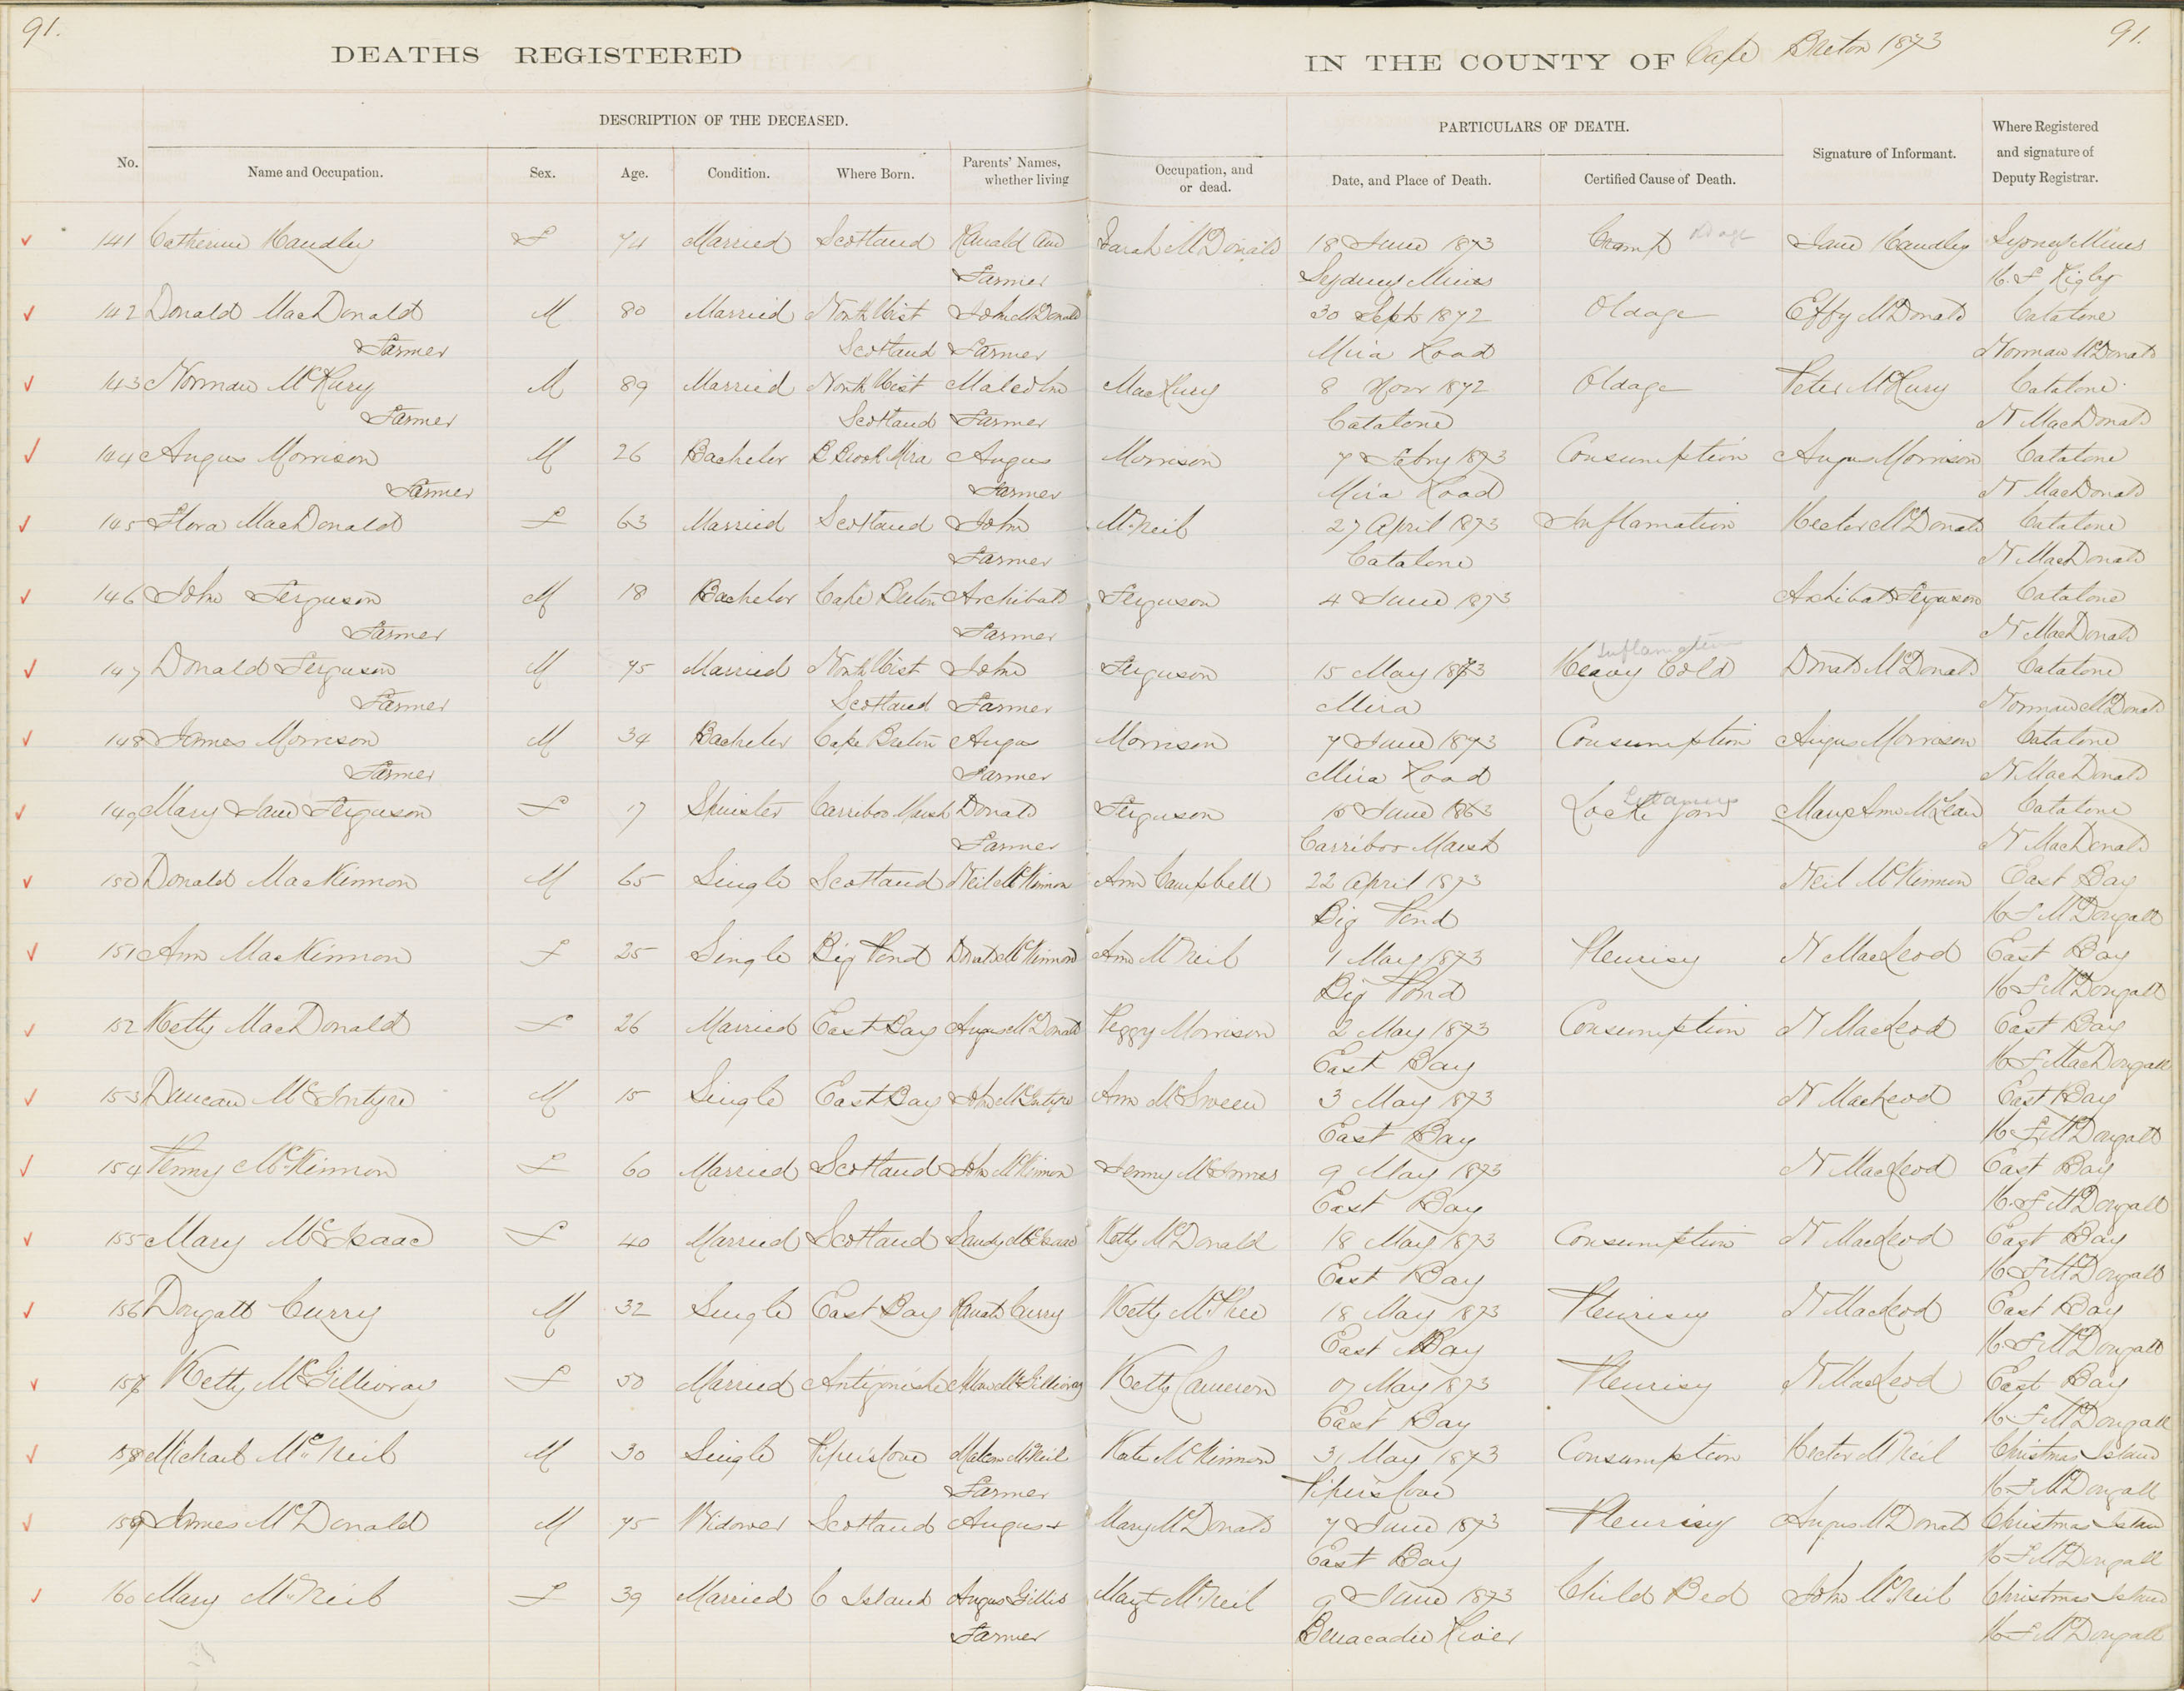 91.
91.
DEATHS REGISTERED IN THE COUNTY OF Cape Breton 1873
DESCRIPTION OF THE DECEASED. PARTICULARS OF DEATH.
No. Name and Occupation. Sex. Age. Condition. Where Born. Parents' Names, whether living Occupation, and or dead. Date, and Place of Death. Certified Cause of Death. Signature of Informant. Where Registered and signature of Deputy Registrar.
141 Catherine Handley F 74 Married Scotland Ranald and Sarah McDonald 18 June 1873 Cramp Jane Handley Sydney Mines
Farmer Sydney Mines
142 Donald MacDonald M 80 Married North Uist John McDonald 30 Sept 1872 Oldage Effy McDonald Catalone
Farmer Scotland Farmer Mira Road Norman McDonald
143 Norman McKury M 89 Married North Uist Malcolm MacKury 8 Novr 1872 Oldage Peter McKury Catalone
Farmer Scotland Farmer Catalone N MacDonald
144 Angus Morrison M 26 Bachelor B Brook Mira Angus Morrison 7 Febry 1873 Consumption Angus Morrison Catalone
Farmer Farmer Mira Road N MacDonald
145 Flora MacDonald F 63 Married Scotland John McNeil 27 April 1873 Inflamation Hector McDonald Catalone
Farmer Catalone N MacDonald
146 John Ferguson M 18 Bachelor Cape Breton Archibald Ferguson 4 June 1873 Archibald Ferguson Catalone
Farmer Farmer N MacDonald
Inflamation
147 Donald Ferguson M 75 Married North Uist John Ferguson 15 May 1873 Heavy Cold Donald McDonald Catalone
Farmer Scotland Farmer Mira Norman McDonald
148 James Morrison M 34 Bachelor Cape Breton Angus Morrison 7 June 1873 Consumption Angus Morrison Catalone
Farmer Farmer Mira Road N MacDonald
149 Mary Jane Ferguson F 17 Spinster Carriboo Marsh Donald Ferguson 10 June 1863 Locke jaw Mary Ann McLean Catalone
Farmer Carriboo Marsh N MacDonald
150 Donald MacKinnon M 65 Single Scotland Neil McKinnon Ann Campbell 22 April 1873 Neil McKinnon East Bay
Big Pond H F McDougall
151 Ann MacKinnon F 25 Single Big Pond Donald McKinnon Ann McNeil 1 May 1873 Pleurisy N MacLeod East Bay
Big Pond H F McDougall
152 Ketty MacDonald F 26 Married East Bay Angus McDonald Peggy Morrison 2 May 1873 Consumption N MacLeod East Bay
East Bay H F MacDougall
153 Duncan McIntyre M 15 Single East Bay John McIntyre Ann McSween 3 May 1873 N MacLeod East Bay
East Bay H F McDougall
154 Penny McKinnon F 60 Married Scotland John McKinnon Jenny McInnes 9 May 1873 N MacLeod East Bay
East Bay H F McDougall
155 Mary McIsaac F 40 Married Scotland Sandy McIsaac Ketty McDonald 18 May 1873 Consumption N MacLeod East Bay
East Bay H F McDougall
156 Dougall Curry M 32 Single East Bay Ranald Curry Ketty McPhee 18 May 1873 Pleurisy N MacLeod East Bay
East Bay H F McDougall
157 Ketty McGillivray F 50 Married Antigonishe Allan McGillivray Ketty Cameron 07 May 1873 Pleurisy N MacLeod East Bay
East Bay H F McDougall
158 Michael McNeil M 30 Single Pipers Cove Malcom McNeil Kate McKinnon 31 May 1873 Consumption Hector McNeil Christmas Island
Farmer Pipers Cove H F McDougall
159 James McDonald M 75 Widower Scotland Angus + Mary McDonald 7 June 1873 Pleurisy Angus McDonald Christmas Island
East Bay H F McDougall
160 Mary McNeil F 39 Married C Island Angus Gillis Margt McNeil 9 June 1873 Child Bed John McNeil Christmas Island
Farmer Benacadie River H F McDougall